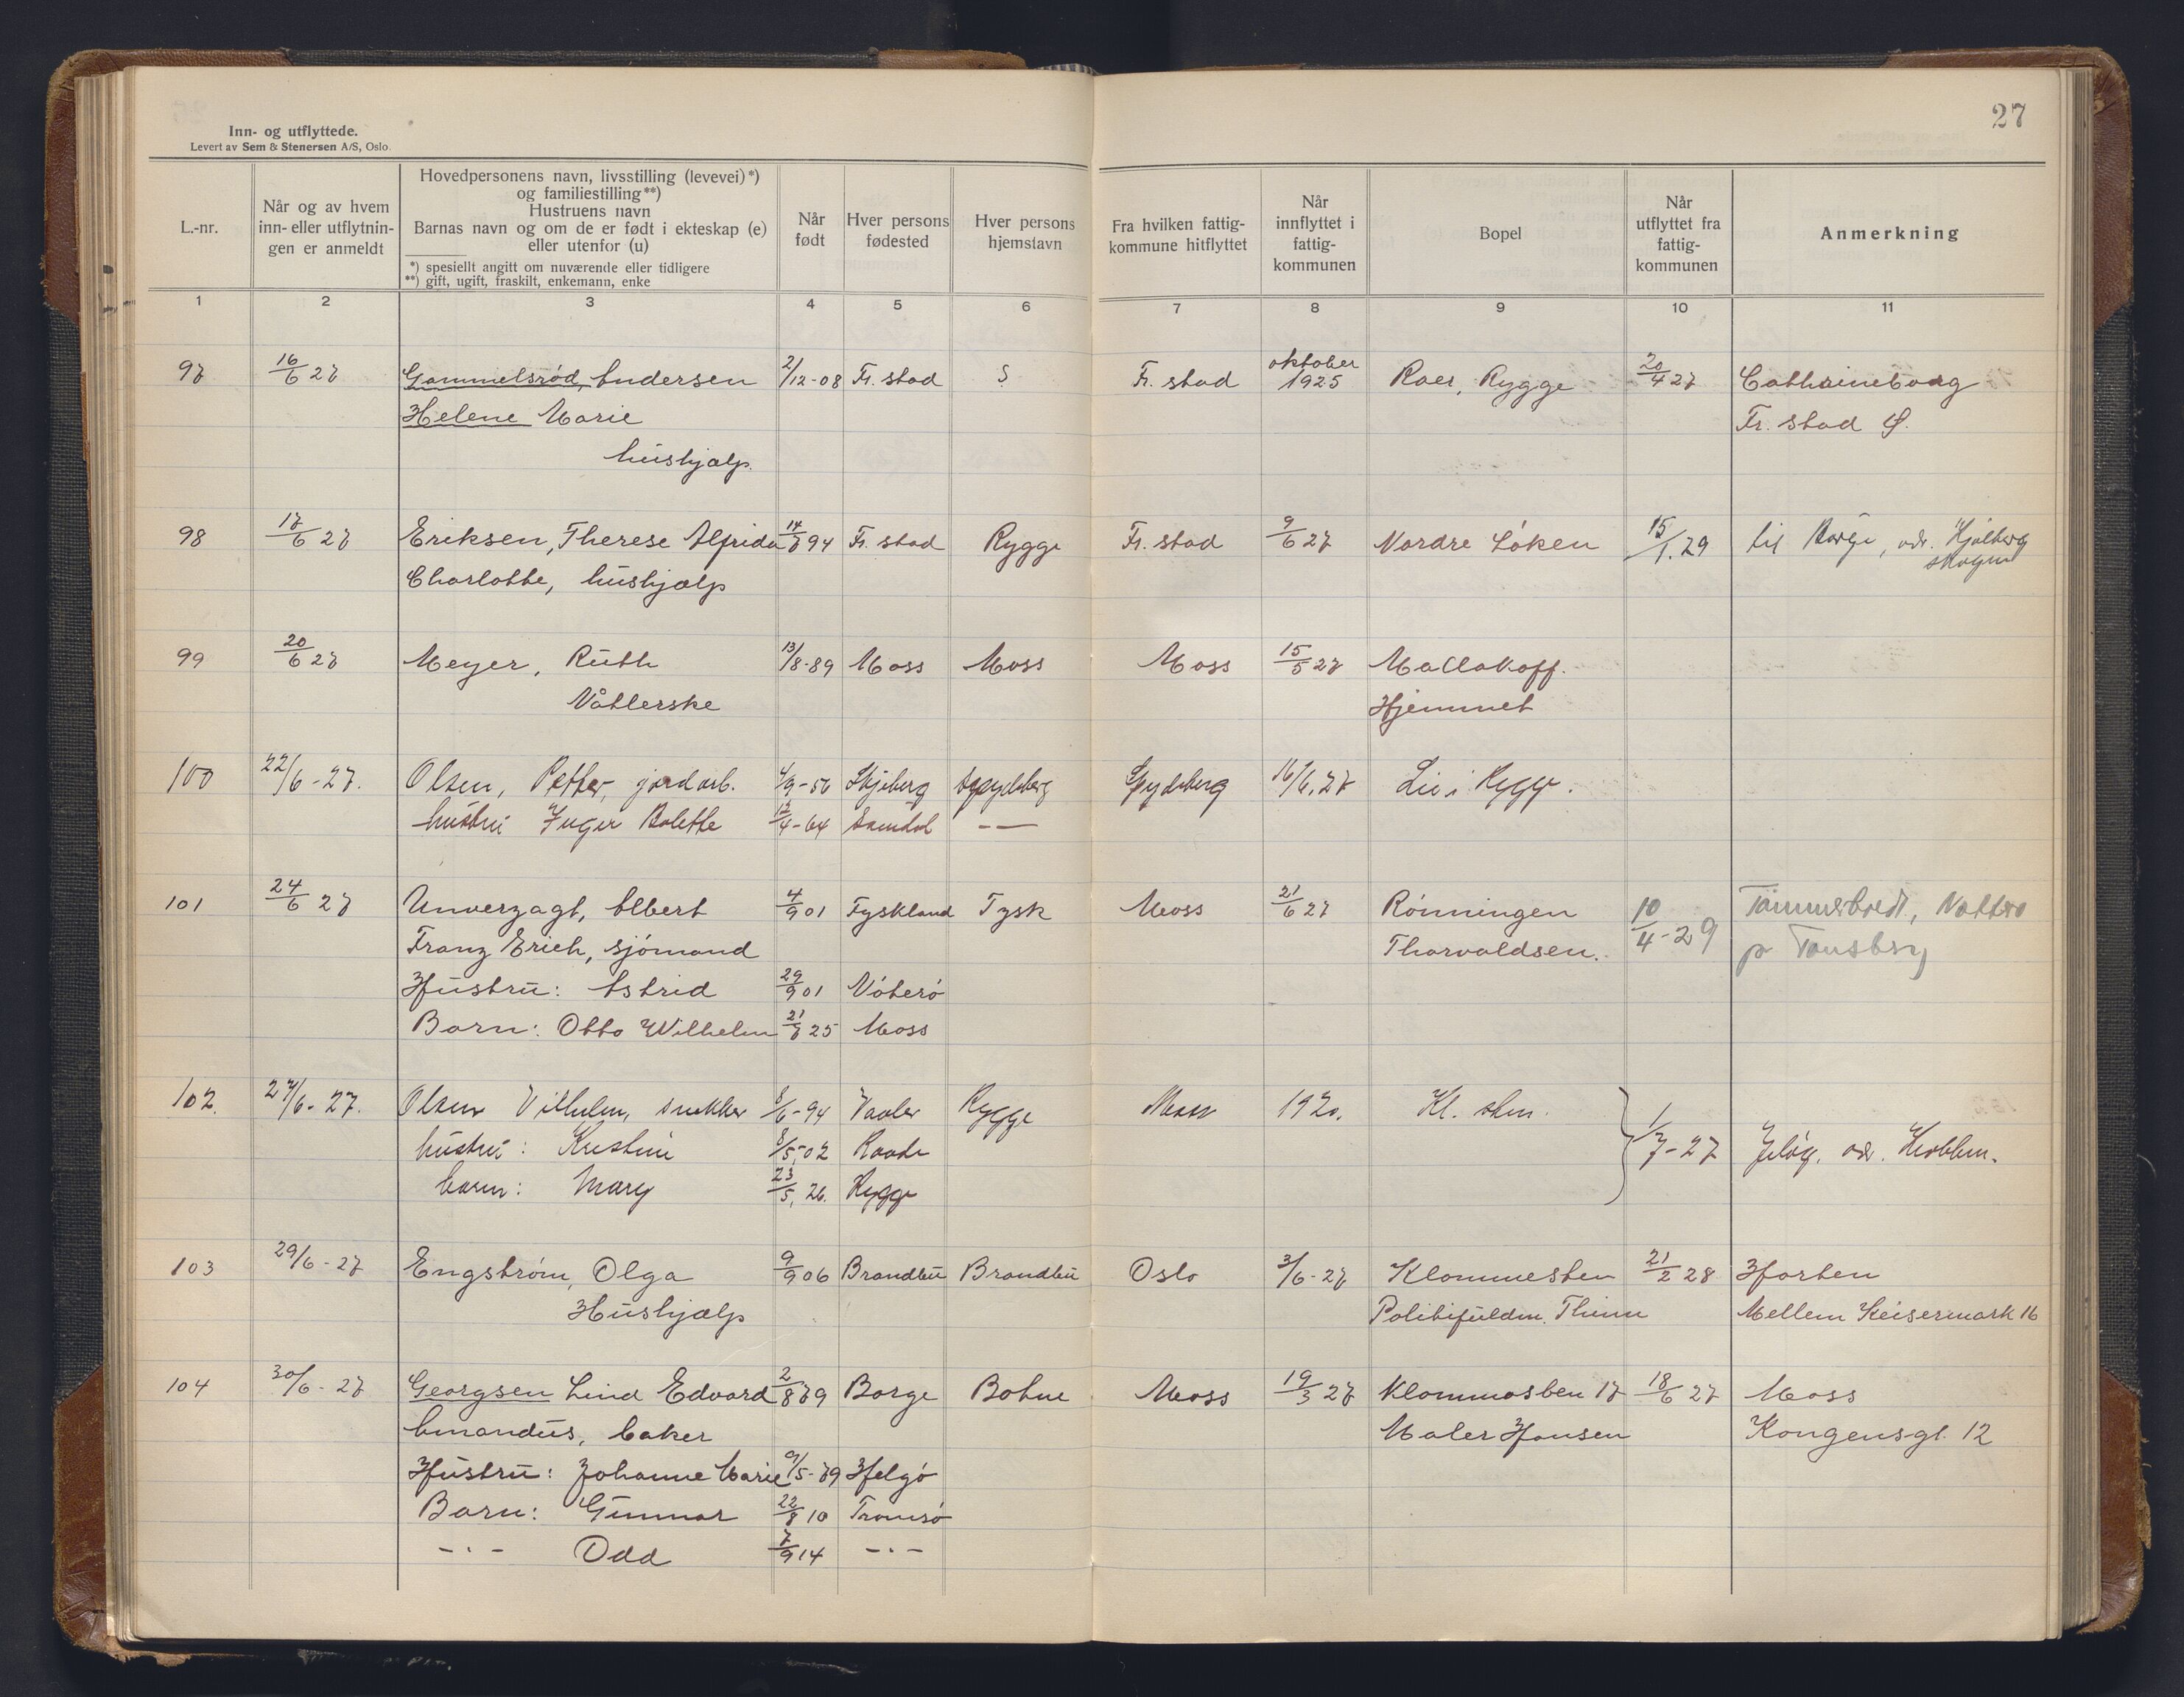 27
Inn- og utflyttede.
Levert av Sem & Stenersen A/S, Oslo.
L.-nr.
Når og av hvem inn- eller utflytnin- gen er anmeldt
Hovedpersonens navn, livsstilling (levevei)*)
og familiestilling**)
Hustruens navn
Barnas navn og om de er født i ekteskap (e)
eller utenfor (u)
*) spesiellt angitt om nuværende eller tidligere
**) gift, ugift, fraskilt, enkemann, enke
Når født
Hver persons fødested
Hver persons hjemstavn
Fra hvilken fattig- kommune hitflyttet
Når innflyttet i fattig- kommunen
Bopel
Når utflyttet fra fattig- kommunen
Anmerkning
1 2 3 4 5 6 7 8 9 10 11
97 16/6 27 Gammelsrød, Andersen 2/12-08 Fr.stad Fr. stad oktober 1925 Roer, Rygge 20/4 27 Cathrineborg
Helene Marie Fr. stad Ø.
hushjælp.
98 17/6 27 Eriksen, Therese Alfrida 94 Fr. stad Rygge Fr. stad 9/6 27 Nordre Løken 15/1.29 til Borge, adr. Hjelberg
Charlotte, hushjælp skogen
99 20/6 27 Meyer, Ruth 13/8-89 Moss Moss Moss 15/5 27 Mallakoff.
Våtlerske Hjemmet
100 22/6-27. Olsen, Petter, jordarb. 4/9-56 Skjeberg Spydeberg Spydeberg 16/6.27 Lie i Rygge.
hustru Inger Bolette 12/4-64 —
101 24/6 27 Unverzagt, Albert 4/9 01 Tyskland Tysk Moss 21/6 27 Rönningen 10/4-29 Nøtterø
Franz Erich, sjömand Thorvaldsen. p Tønsberg
Hustru: Astrid 29/9 01 Nöterö
Barn: Otto Wilhelm 21/8 25 Moss
102. 27/6-27. Olsen Vilhelm, snekker 8/6-94 Vaaler Rygge Moss 1920. Kl. sten. 1/7-27 Jeløy, adr. Kubben.
hustru: Kristine 8/5-02 Raade
barn: Mary 23/5.26. Rygge
103 29/6-27 Engström, Olga 9/9 06 Brandbu Brandbu Oslo 3/6-27 Klommesten 21/2 28 Horten
Hushjælp Politifuldm. Thune Mellem Keisermark 16
104 30/6-27 Georgsen Lind Edvard 2/8 79 Borge Moss 19/3 27 Klommasten 17 18/6 27 Moss
Amandus, baker Maler Hansen Kongensgt. 12
Hustru: Johanne Marie 9/5-79 Helgö
Barn: Gunnar 22/8 10 Tromsö
-"- Odd 7/9 14 -"-